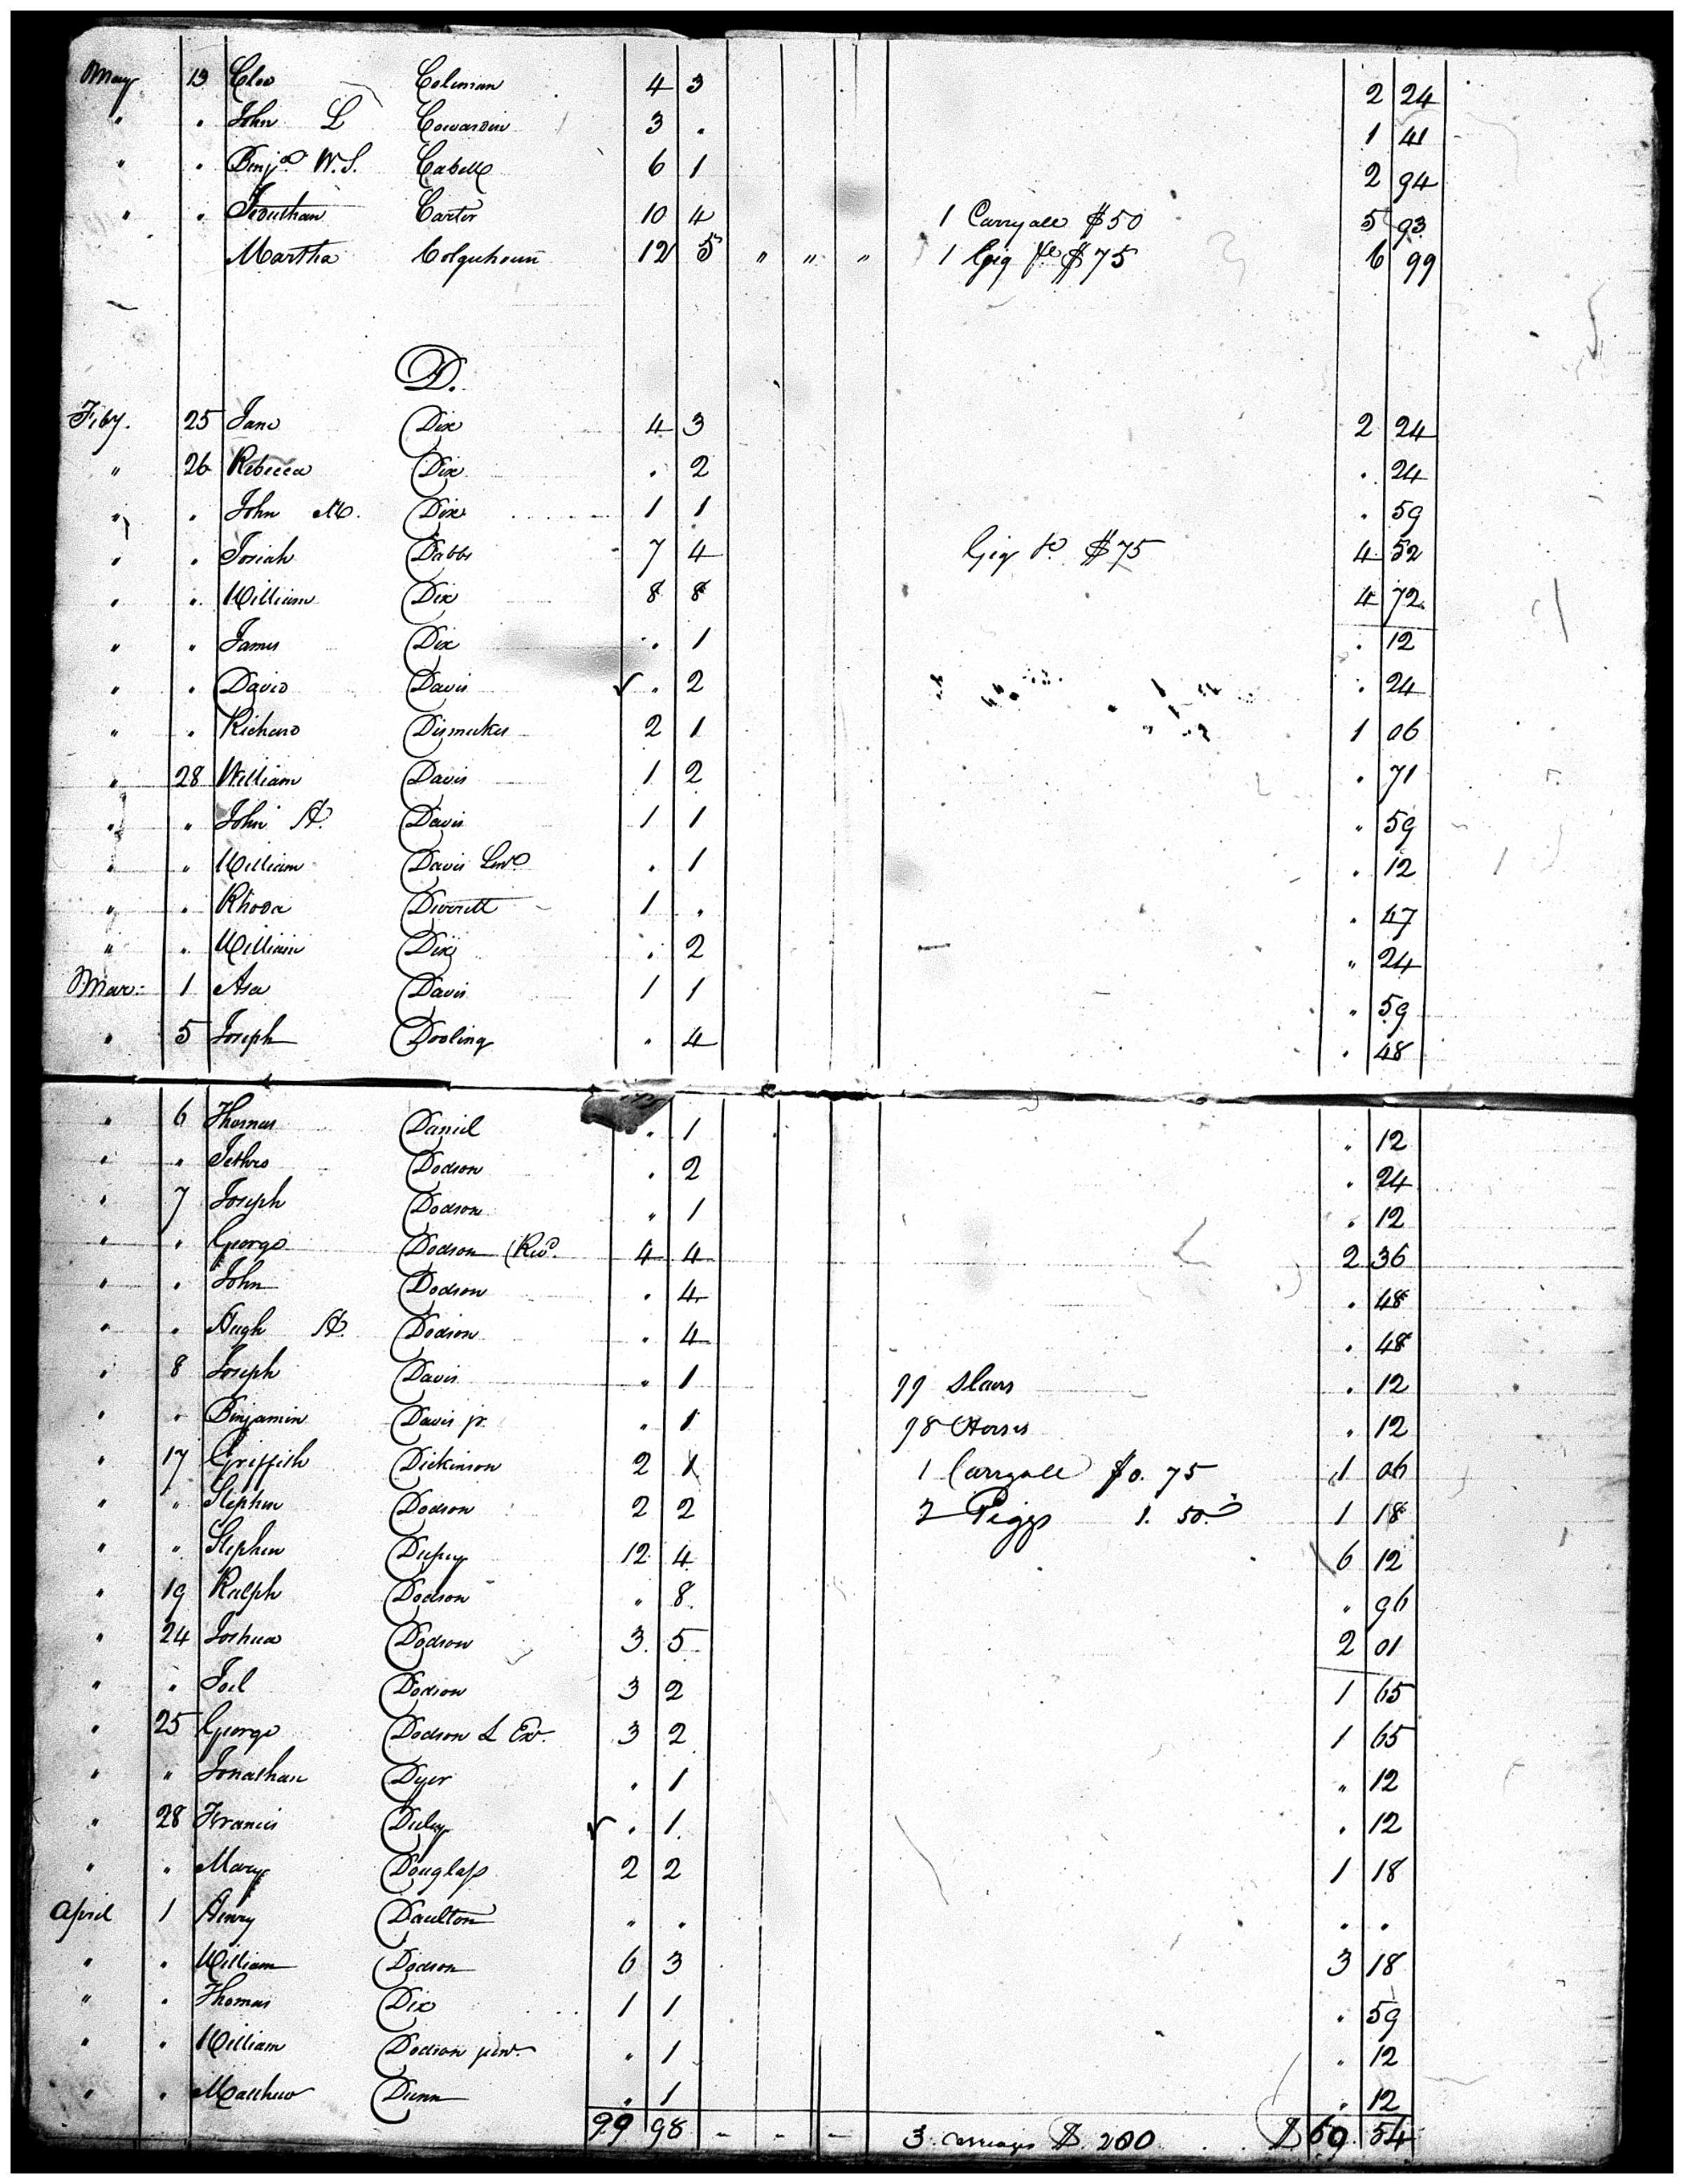 May 13 Cleo Coleman 4 3 2 24
" " John L Cowardin 3 . 1 41
" " Benja. W. S. Cabell 6 1 2 94
" " Jeduthan Carter 10 4 1 Carryall $50 5 93
Martha Colquhoun 12 5 " " " 1 Gig $75 6 99
D.
Feby. 25 Jane Dix 4 3 2 24
" 26 Rebecca Dix . 2 . 24
" " John M. Dix 1 1 . 59
" " Josiah Dabbs 7 4 Gig Do. $75 4 52
" " William Dix 8 8 4 72
" " James Dix . 1 . 12
" " David Davis ✓ . 2 . 24
" " Richard Dismukes 2 1 1 06
" 28 William Davis 1 2 . 71
" " John A. Davis 1 1 " 59
" " William Davis . 1 . 12
" " Rhoda Diverett 1 . . 47
" " William Dix . 2 " 24
Mar: 1 Asa Davis 1 1 " 59
" 5 Joseph Dooling . 4 . 48
" 6 Thomas Daniel . 1 " 12
" " Jethro Dodson . 2 . 24
" 7 Joseph Dodson " 1 . 12
" " George Dodson (Revd. 4 4 2 36
" " John Dodson . 4 . 48
" " Hugh A. Dodson . 4 . 48
" 8 Joseph Davis " 1 99 Slaves . 12
" " Benjamin Davis jr. " 1 98 Horses " 12
" 17 Griffith Dickinson 2 1 1 Carryall $0. 75 1 06
" " Stephen Dodson 2 2 2 Giggs 1. 50 1 18
" " Stephen Dupuy 12 4 6 12
" 19 Ralph Dodson " 8 " 96
" 24 Joshua Dodson 3 5 2 01
" " Joel Dodson 3 2 1 65
" 25 George Dodson L Ex. 3 2 1 65
" " Jonathan Dyer . 1 " 12
" 28 Francis Duley ✓ . 1 . 12
" " Mary Douglass 2 2 1 18
April 1 Henry Daulton " . . .
" " William Dodson 6 3 3 18
" " Thomas Dix 1 1 . 59
" " William Dodson junr. " 1 " 12
" " Matthew Dunn " 1 . 12
99 98 - - - 3 carriages $ 200 $ 69 54